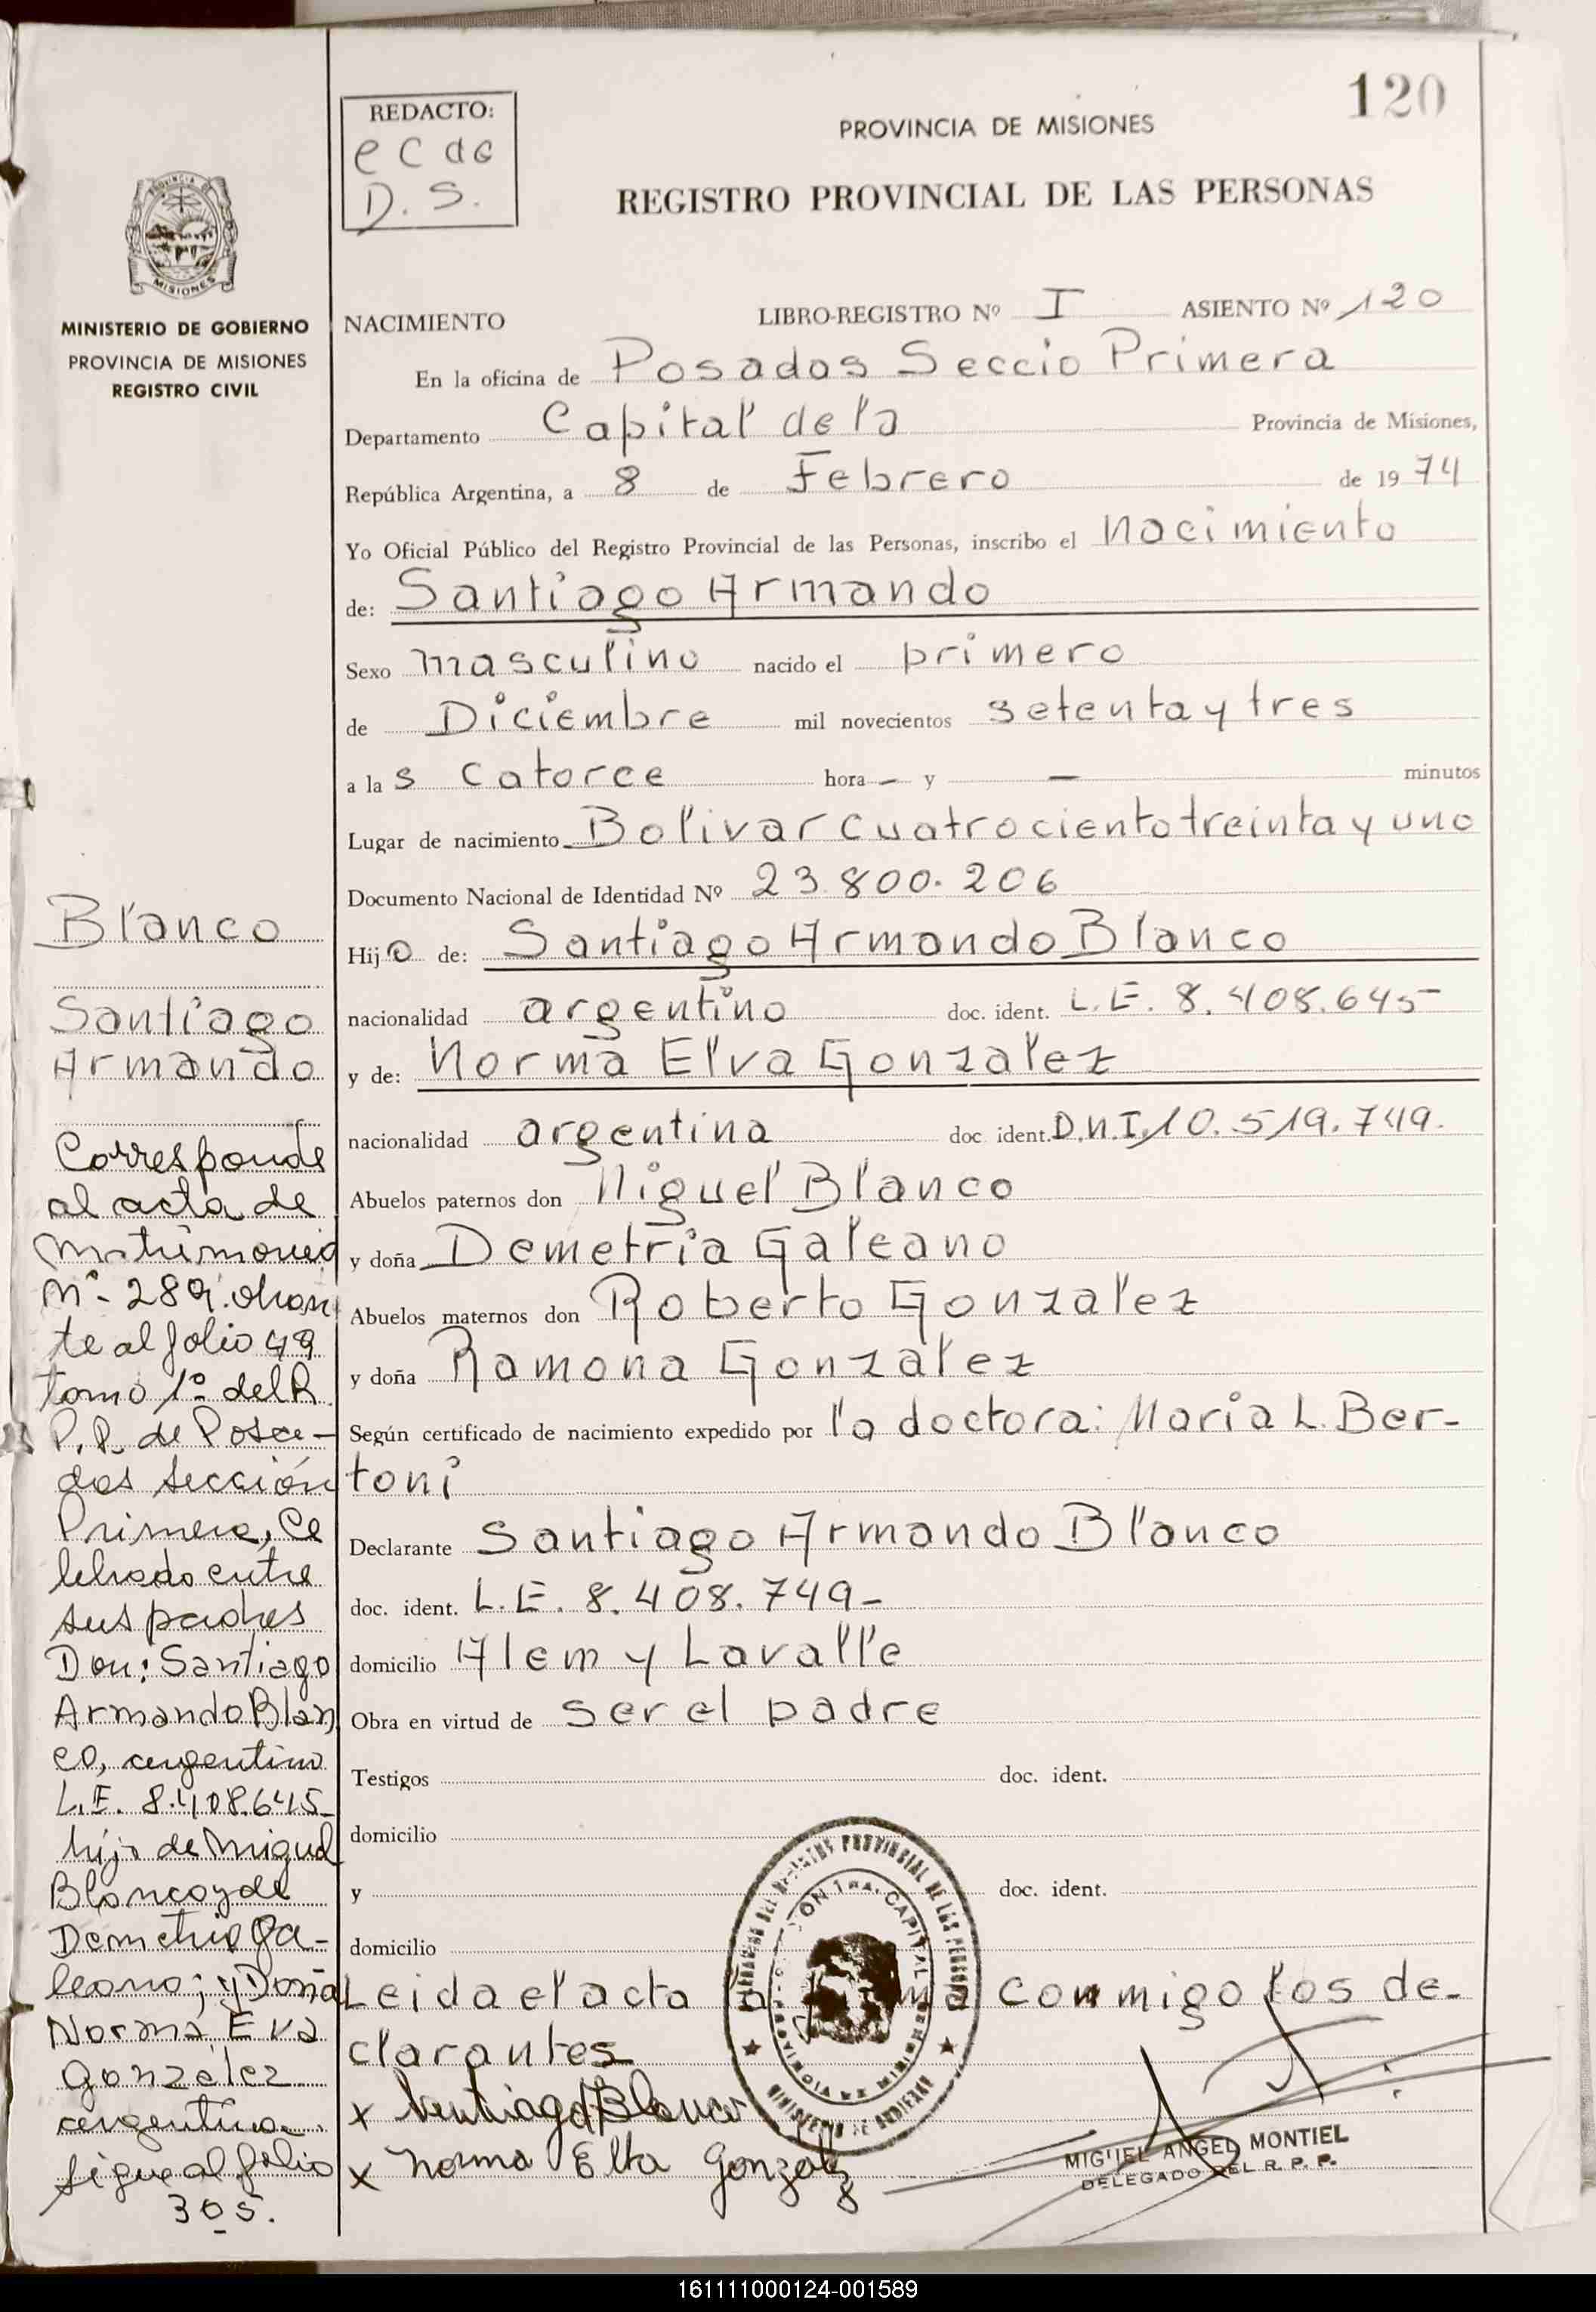 120
REDACTO:
e C de
D. S.
PROVINCIA DE MISIONES
REGISTRO PROVINCIAL DE LAS PERSONAS
MISIONES
MINISTERIO DE GOBIERNO
PROVINCIA DE MISIONES
REGISTRO CIVIL
NACIMIENTO LIBRO-REGISTRO Nº I ASIENTO Nº 120
En la oficina de Posadas Seccio Primera
Departamento Capital de la Provincia de Misiones,
República Argentina, a 8 de Febrero de 1974
Yo Oficial Público del Registro Provincial de las Personas, inscribo el Nacimiento
de: Santiago Armando
Sexo masculino nacido el primero
de Diciembre mil novecientos setenta y tres
a las catorce hora — y — minutos
Lugar de nacimiento Bolivar cuatrociento treinta y uno
Documento Nacional de Identidad Nº 23.800.206
Hijo de: Santiago Armando Blanco
nacionalidad argentino doc. ident. L.E. 8.408.645-
y de: Norma Elva Gonzalez
nacionalidad argentina doc ident. D.N.I. 10.519.749.
Abuelos paternos don Miguel Blanco
y doña Demetria Galeano
Abuelos maternos don Roberto Gonzalez
y doña Ramona Gonzalez
Según certificado de nacimiento expedido por la doctora: Maria L. Ber-
toni
Declarante Santiago Armando Blanco
doc. ident. L.E. 8.408.749-
domicilio Alem y Lavalle
Obra en virtud de ser el padre
Testigos doc. ident.
domicilio
y doc. ident.
domicilio
Leida el acta la conmigo los de-
clarantes
x Santiago A Blanco
x Norma Elba Gonzalez
MIGUEL ANGEL MONTIEL
DELEGADO DEL R. P. P.
Blanco
Santiago
Armando
Corresponde
al acta de
matrimonio
Nº- 289. obran
te al folio 49
tomo 1º del R.
P.P. de Posa-
das sección
Primera, Ce
lebrado entre
sus padres
Don: Santiago
Armando Blan
co, argentino
L.E. 8.408.645-
hijo de Miguel
Blanco y de
Demetria Ga-
leano; y Doña
Norma Eva
Gonzalez
argentina
sigue al folio
305.
161111000124-001589